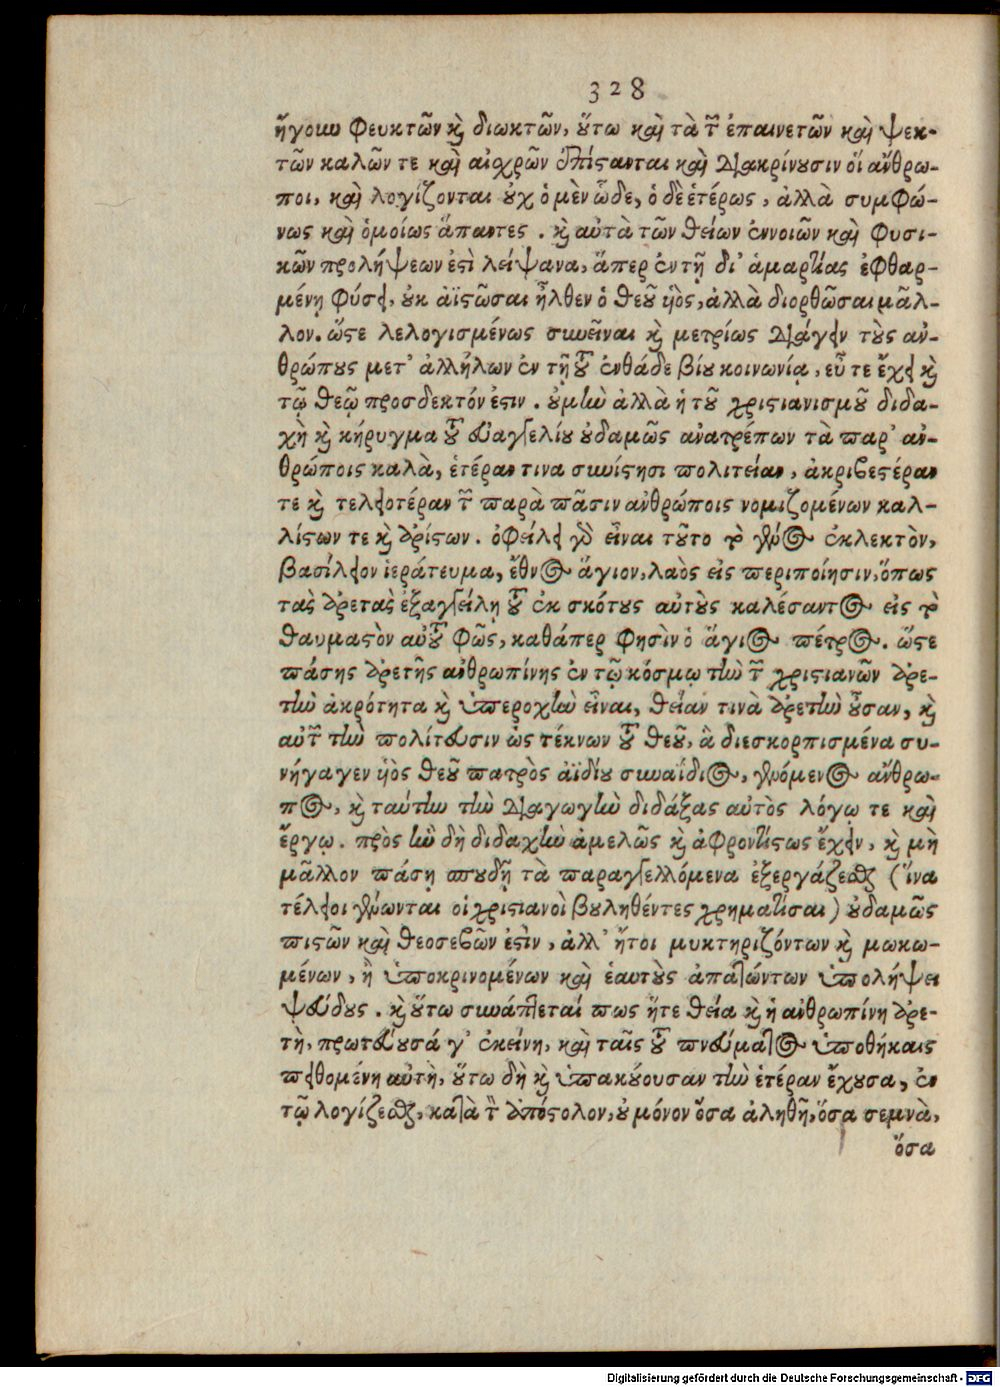 328
ἤγουν φευκτῶν καὶ διωκτῶν, ὅυτω καὶ τὰ τῶν ἐπαινετῶν καὶ ψεκ-
τῶν καλῶν τε καὶ αἰσχρῶν ἐπίστανται καὶ διακρίνουσιν ὁἱ ἄνθρω-
ποι, καὶ λογίζονται οὐχ ὁ μὲν ὧδε, ὁ δὲ ἑτέρως, ἀλλὰ συμφώ-
νως καὶ ὁμοίως ἅπαντες. καὶ αὐτὰ τῶν θείων ἐννοιῶν καὶ φυσι-
κῶν προλήψεων ἐστὶ λείψανα, ἅπερ ἐν τῇ δι' ἁμαρτίας ἐφθαρ-
μένῃ φύσει, οὐκ ἀϊστῶσαι ἦλθεν ὁ θεοῦ υἱὸς, ἀλλὰ διορθῶσαι μᾶλ-
λον. ὥστε λελογισμένως συνεῖναι καὶ μετρίως διάγειν τοὺς ἀν-
θρώπους μετ' ἀλλήλων ἐν τῇ τοῦ ἐνθάδε βίου κοινωνίᾳ, εὖ τε ἔχει καὶ
τῷ θεῷ προσδεκτόν ἐστιν. οὐ μὴν ἀλλὰ ἡ τοῦ χριστιανισμοῦ διδα-
χὴ καὶ κήρυγμα τοῦ εὐαγγελίου οὐδαμῶς ἀνατρέπων τὰ παρ' ἀν-
θρώποις καλὰ, ἑτέραν τινα συνίστησι πολιτείαν, ἀκριβεστέραν
τε καὶ τελειοτέραν τῶν παρὰ πᾶσιν ἀνθρώποις νομιζομένων καλ-
λίστων τε καὶ ἀρίστων. ὀφείλει γὰρ εἶναι τοῦτο τὸ γένος ἐκλεκτὸν,
βασίλειον ἱεράτευμα, ἔθνος ἅγιον, λαὸς εἰς περιποίησιν, ὅπως
τὰς ἀρετὰς ἐξαγγείλῃ τοῦ ἐκ σκότους αὐτοὺς καλέσαντος εἰς τὸ
θαυμαστὸν αὐτοῦ φῶς, καθάπερ φησὶν ὁ ἅγιος πέτρος. ὥστε
πάσης ἀρετῆς ἀνθρωπίνης ἐν τῷ κόσμῳ τὴν τῶν χριστιανῶν ἀρε-
τὴν ἀκρότητα καὶ ὑπεροχὴν εἶναι, θείαν τινὰ ἀρετὴν οὖσαν, καὶ
αὐτῶν τὴν πολίτευσιν ὡς τέκνων τοῦ θεοῦ, ἃ διεσκορπισμένα συ-
νήγαγεν υἱὸς θεοῦ πατρὸς ἀϊδίου συναΐδιος, γενόμενος ἄνθρω-
πος, καὶ ταύτην τὴν διαγωγὴν διδάξας αὐτὸς λόγῳ τε καὶ
ἔργῳ. πρὸς ἣν δὴ διδαχὴν ἀμελῶς καὶ ἀφροντίστως ἔχειν, καὶ μὴ
μᾶλλον πάσῃ σπουδῇ τὰ παραγγελλόμενα ἐξεργάζεσθαι (ἵνα
τέλειοι γένωνται οἱ χριστιανοὶ βουληθέντες χρηματίσαι) οὐδαμῶς
πιστῶν καὶ θεοσεβῶν ἐστὶν, ἀλλ' ἤτοι μυκτηριζόντων καὶ μωκω-
μένων, ἢ ὑποκρινομένων καὶ ἑαυτοὺς ἀπατώντων ὑπολήψει
ψεύδους. καὶ οὕτω συνάπτεταί πως ἥτε θεία καὶ ἡ ἀνθρωπίνη ἀρε-
τὴ, πρωτεύουσά γ' ἐκείνη, καὶ ταῖς τοῦ πνεύματος ὑποθήκαις
πειθομένη αὐτὴ, οὕτω δὴ καὶ ὑπακούουσαν τὴν ἑτέραν ἔχουσα, ἐν
τῷ λογίζεσθαι, κατὰ τὸν ἀπόστολον, οὐ μόνον ὅσα ἀληθῆ, ὅσα σεμνὰ,
ὅσα
Digitalisierung gefördert durch die Deutsche Forschungsgemeinschaft - DFG